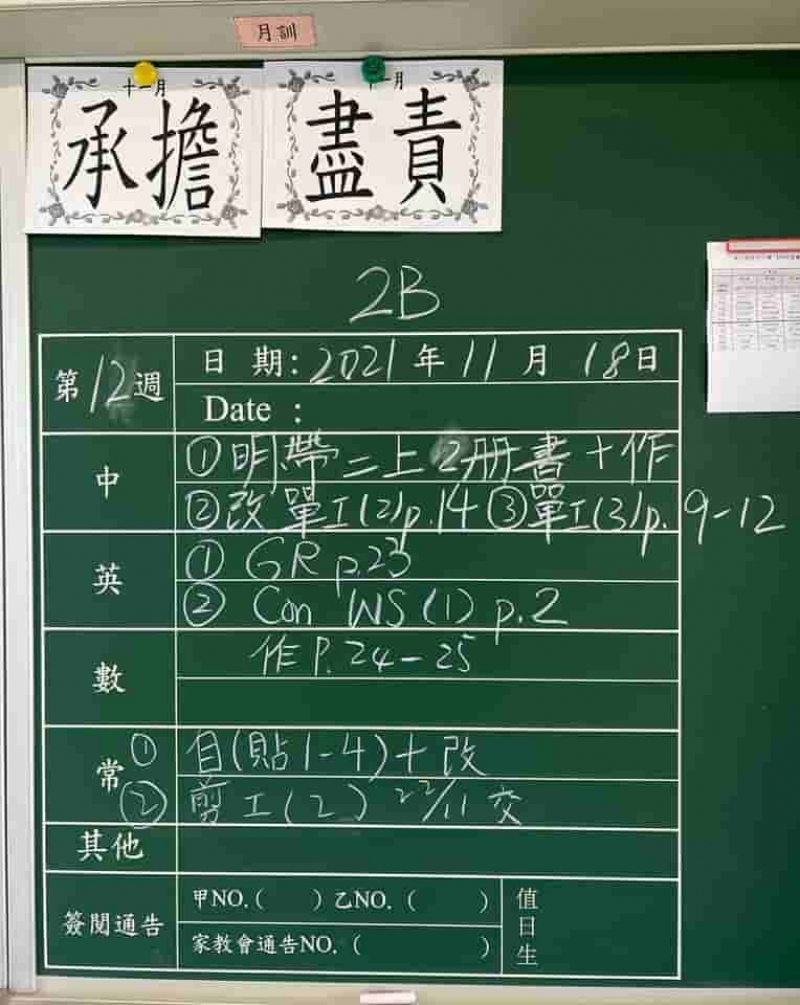 月訓
十一月
承擔
十一月
盡責
2B
第12週
日 期：2021年11月18日
Date :
中
①明帶二上2册書+作
②改單工(2)p.14 ③單工(3)p.9-12
英
① GR p.23
② Con WS (1) p.2
數
作P.24-25
常
① 自(貼1-4)+改
② 剪工(2) 22/11交
其他
簽閱通告
甲NO.( ) 乙NO. ( )
家教會通告NO. ( )
值日生